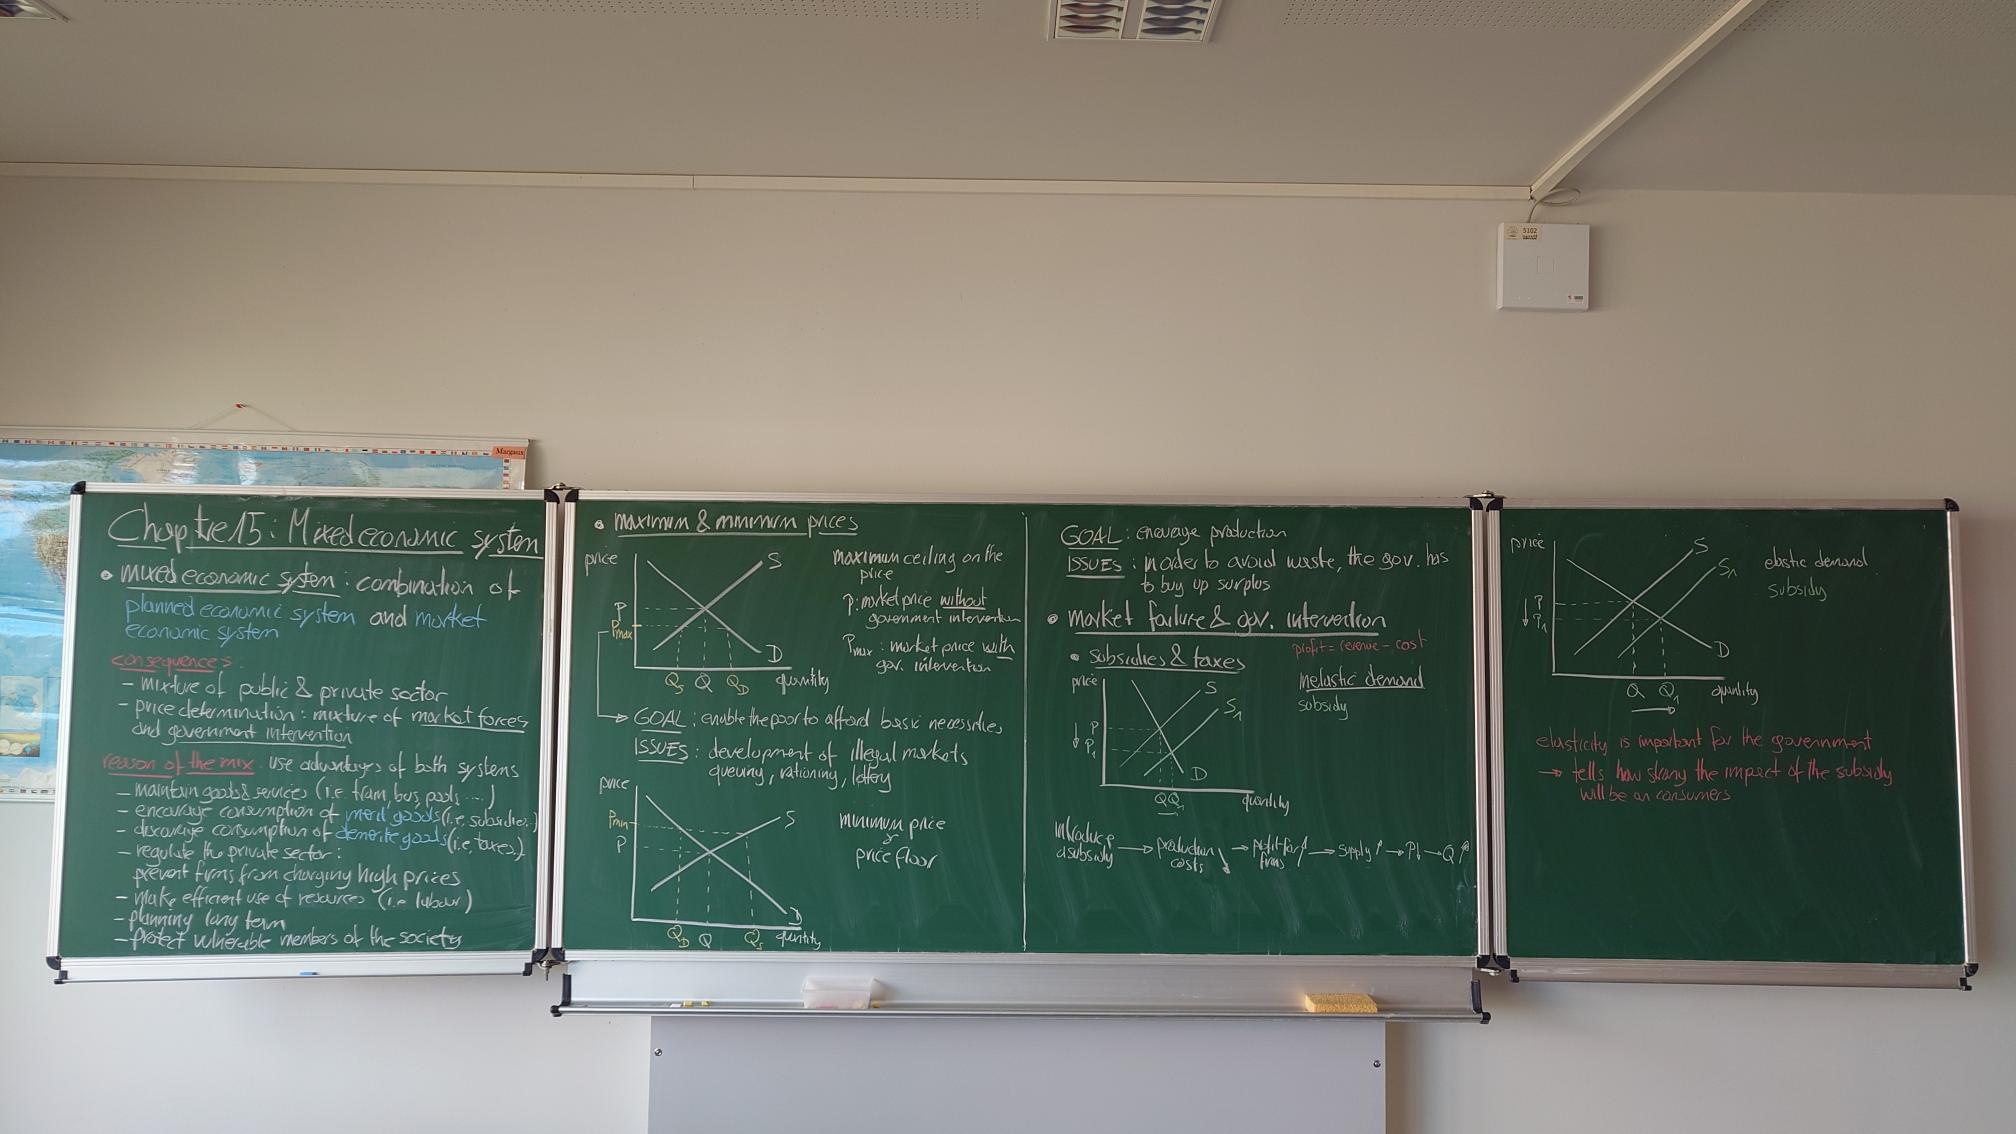 Chapitre 15: Mixed economic system
• mixed economic system : combination of
planned economic system and market
economic system
consequences :
- mixture of public & private sector
- price determination : mixture of market forces
and government intervention
reason of the mix : use advantages of both systems
- maintain goods & services (i.e. tram, bus, pools ....)
- encourage consumption of merit goods (i.e. subsidies..)
- discourage consumption of demerite goods (i.e. taxes..)
- regulate the private sector :
prevent firms from charging high prices
- make efficient use of resources (i.e labour)
- planning long term
- protect vulnerable members of the society
• maximum & minimum prices
price
S
P
Pmax
D
QS Q QD quantity
maximum ceiling on the
price
P: market price without
government intervention
Pmax : market price with
gov. intervention
→ GOAL : enable the poor to afford basic necessities
ISSUES : development of illegal markets
queuing, rationing, lottery
price
S
Pmin
P
D
QD Q QS quantity
minimum price
or
price floor
GOAL : encourage production
ISSUES : in order to avoid waste, the gov. has
to buy up surplus
• market failure & gov. intervention
profit = revenue - cost
• subsidies & taxes
price
S
S1
P
↓ P1
D
Q Q1 quantity
inelastic demand
subsidy
introduce
a subsidy → production
costs ↓ → profit for
firms ↑ → supply ↑ → P↓ → Q ↑
price
S
S1
P
↓ P1
D
Q Q1 quantity
→
elastic demand
subsidy
elasticity is important for the government
→ tells how strong the impact of the subsidy
will be on consumers
Margaux
5102